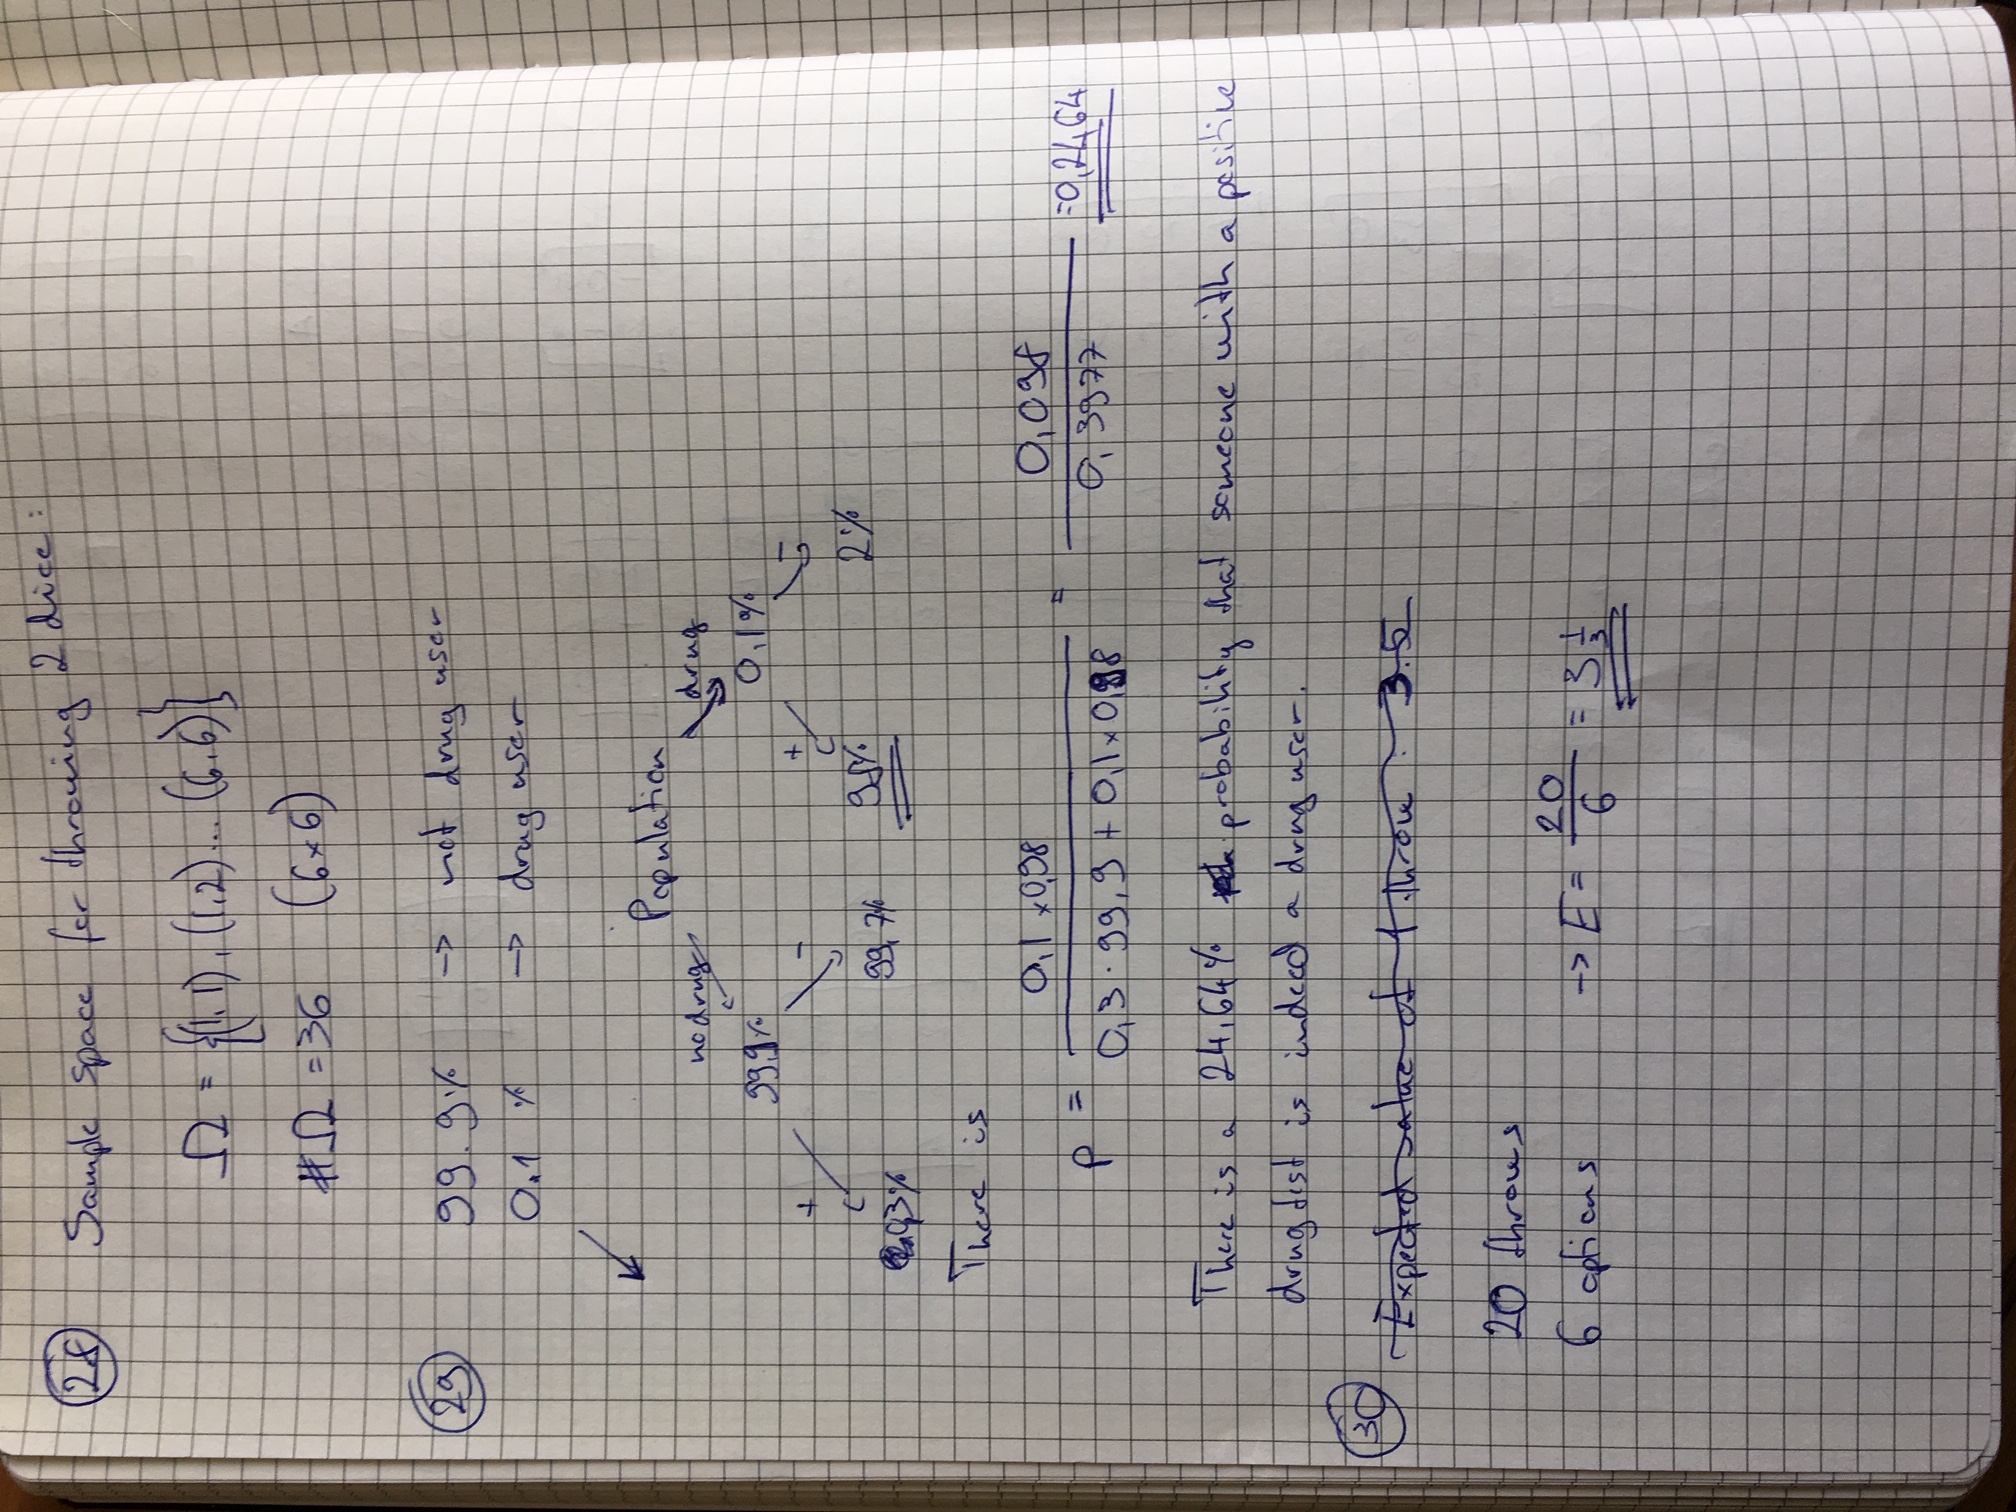 28 Sample space for throwing 2 dice:
Ω = {(1,1), (1,2)... (6,6)}
#Ω = 36 (6×6)
29 99.9% -> not drug user
0.1 % -> drug user
Population
no drug drug
99,9% 0,1%
+ - + -
0,3% 99,7% 98% 2%
There is
p = 0,1 × 0,98 / 0,3 · 99,9 + 0,1 × 0,98 = 0,098 / 0,3977 = 0,2464
There is a 24,64% probability that someone with a positive
drug test is indeed a drug user.
30 Expected value of 1 throw : 3.5
20 throws
6 options -> E = 20/6 = 3 1/3